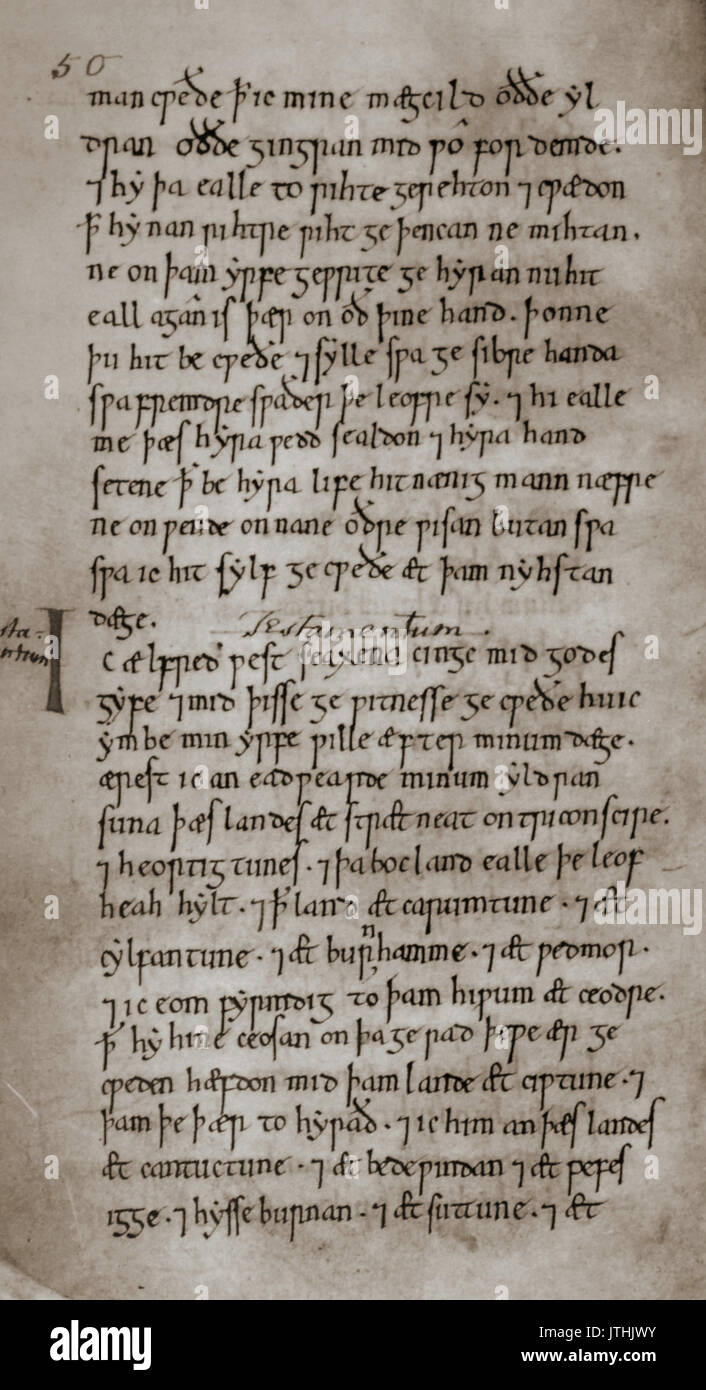 50
man cƿeðe þꝥ ic mine mægcild oððe yl
dran oððe gingran mid ƿo fordemde.
⁊ hy þa ealle to rihte gerehton ⁊ cƿædon
ꝥ hy nan rihtre riht geþencan ne mihtan.
ne on þam yrfegeƿrite gehyran nu hit
eall agan is þær on oð þine hand. þonne
þu hit becƿeðe ⁊ sylle sƿa gesibre handa
sƿa fremdre sƿaðer þe leofre sy. ⁊ hi ealle
me þæs hyra ƿedd sealdon ⁊ hyra hand
setene ꝥ be hyra life hit nænig mann næfre
ne onƿende on nane oðre ƿisan butan sƿa
sƿa ic hit sylf gecƿeðe æt þam nyhstan
dæge.
Testamentum.
Ic ælfred ƿest seaxena cinge mid godes
gyfe ⁊ mid þisse geƿitnesse gecƿeðe hu ic
ymbe min yrfe ƿille æfter minum dæge.
ærest ic an eadƿearde minum yldran
suna þæs landes æt strætneat on triconscire.
⁊ heortigtunes. ⁊ þa bocland ealle þe leof
heah hylt. ⁊ ꝥ land æt carumtune. ⁊ æt
cylfantune. ⁊ æt burnhamme. ⁊ æt ƿedmor.
⁊ ic eom fyrmdig to þam hiƿum æt ceodre.
ꝥ hy hine ceosan on þa gerad þe ƿe ær ge
cƿeden hæfdon mid þam lande æt ciƿtune. ⁊
þam þe þær to hyrað. ⁊ ic him an þæs landes
æt cantuctune. ⁊ æt bedeƿindan ⁊ æt ƿefes
igge. ⁊ hysseburnan. ⁊ æt suttune. ⁊ æt
alamy
a
alamy stock photo
alamy
Image ID: JTHJWY
www.alamy.com